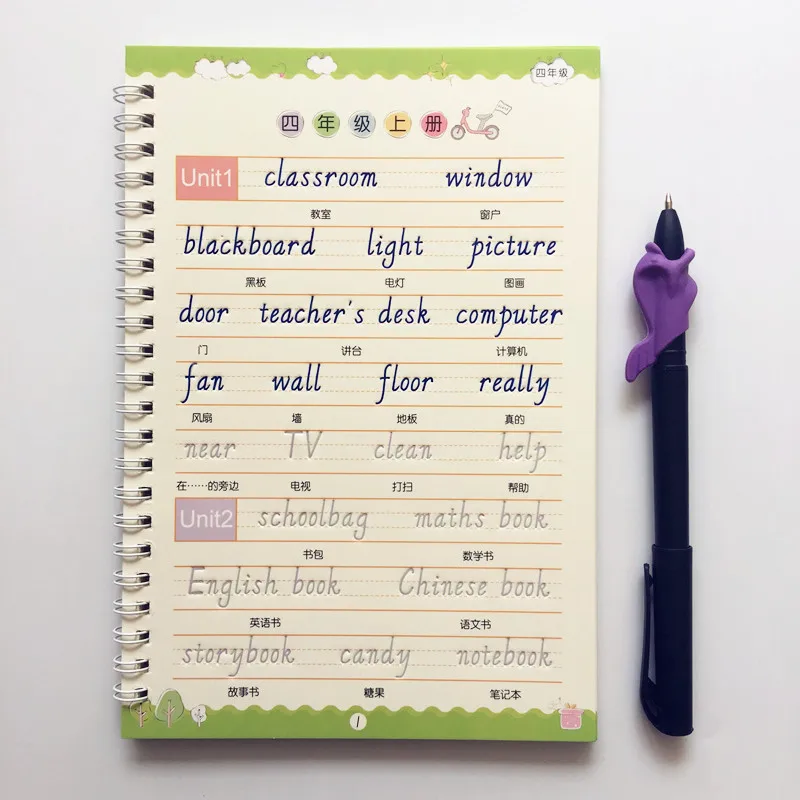 四年级
四年级上册
Unit1 classroom window
教室 窗户
blackboard light picture
黑板 电灯 图画
door teacher's desk computer
门 讲台 计算机
fan wall floor really
风扇 墙 地板 真的
near TV clean help
在……的旁边 电视 打扫 帮助
Unit2 schoolbag maths book
书包 数学书
English book Chinese book
英语书 语文书
storybook candy notebook
故事书 糖果 笔记本
1